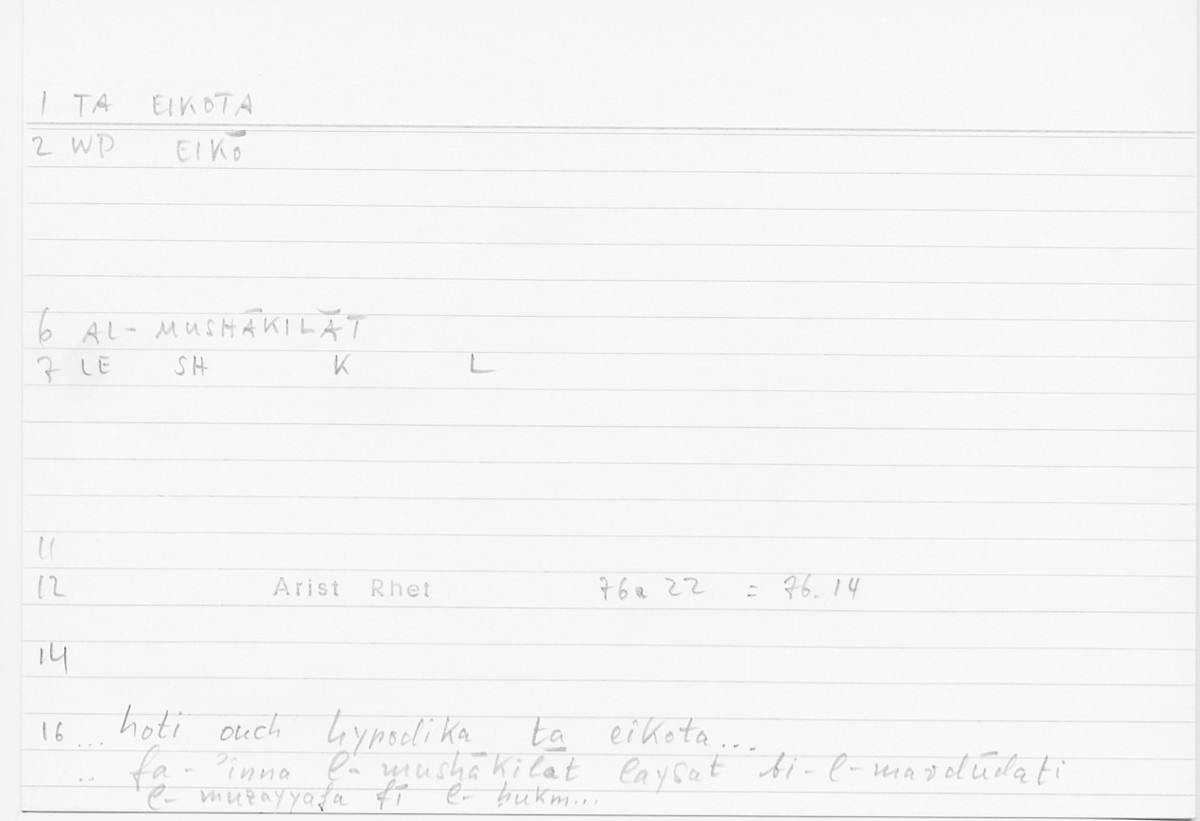 1 TA EIKOTA
2 WP EIKŌ
6 AL- MUSHĀKILĀT
7 LE SH K L
11
12 Arist Rhet 76a 22 = 76.14
14
16 ... hoti ouch hypodika ta eikota...
.. fa- ʾinna l- mushākilāt laysat bi-l-mardūdati
l- muzayyafa fī l- ḥukm...